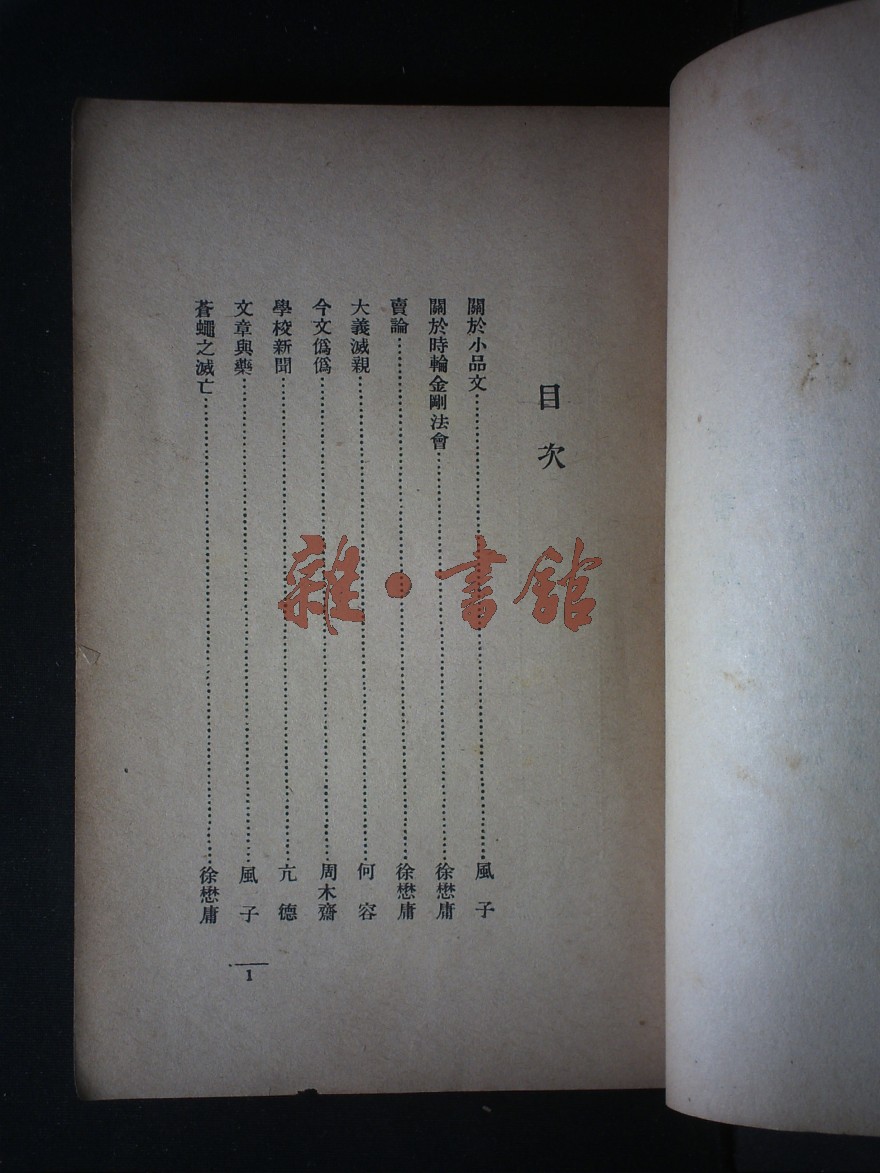 目次
關於小品文……風子
關於時輪金剛法會……徐懋庸
賣論……徐懋庸
大義滅親……何容
今文僞僞……周木齋
學校新聞……亢德
文章與藥……風子
蒼蠅之滅亡……徐懋庸
1
雜·書館